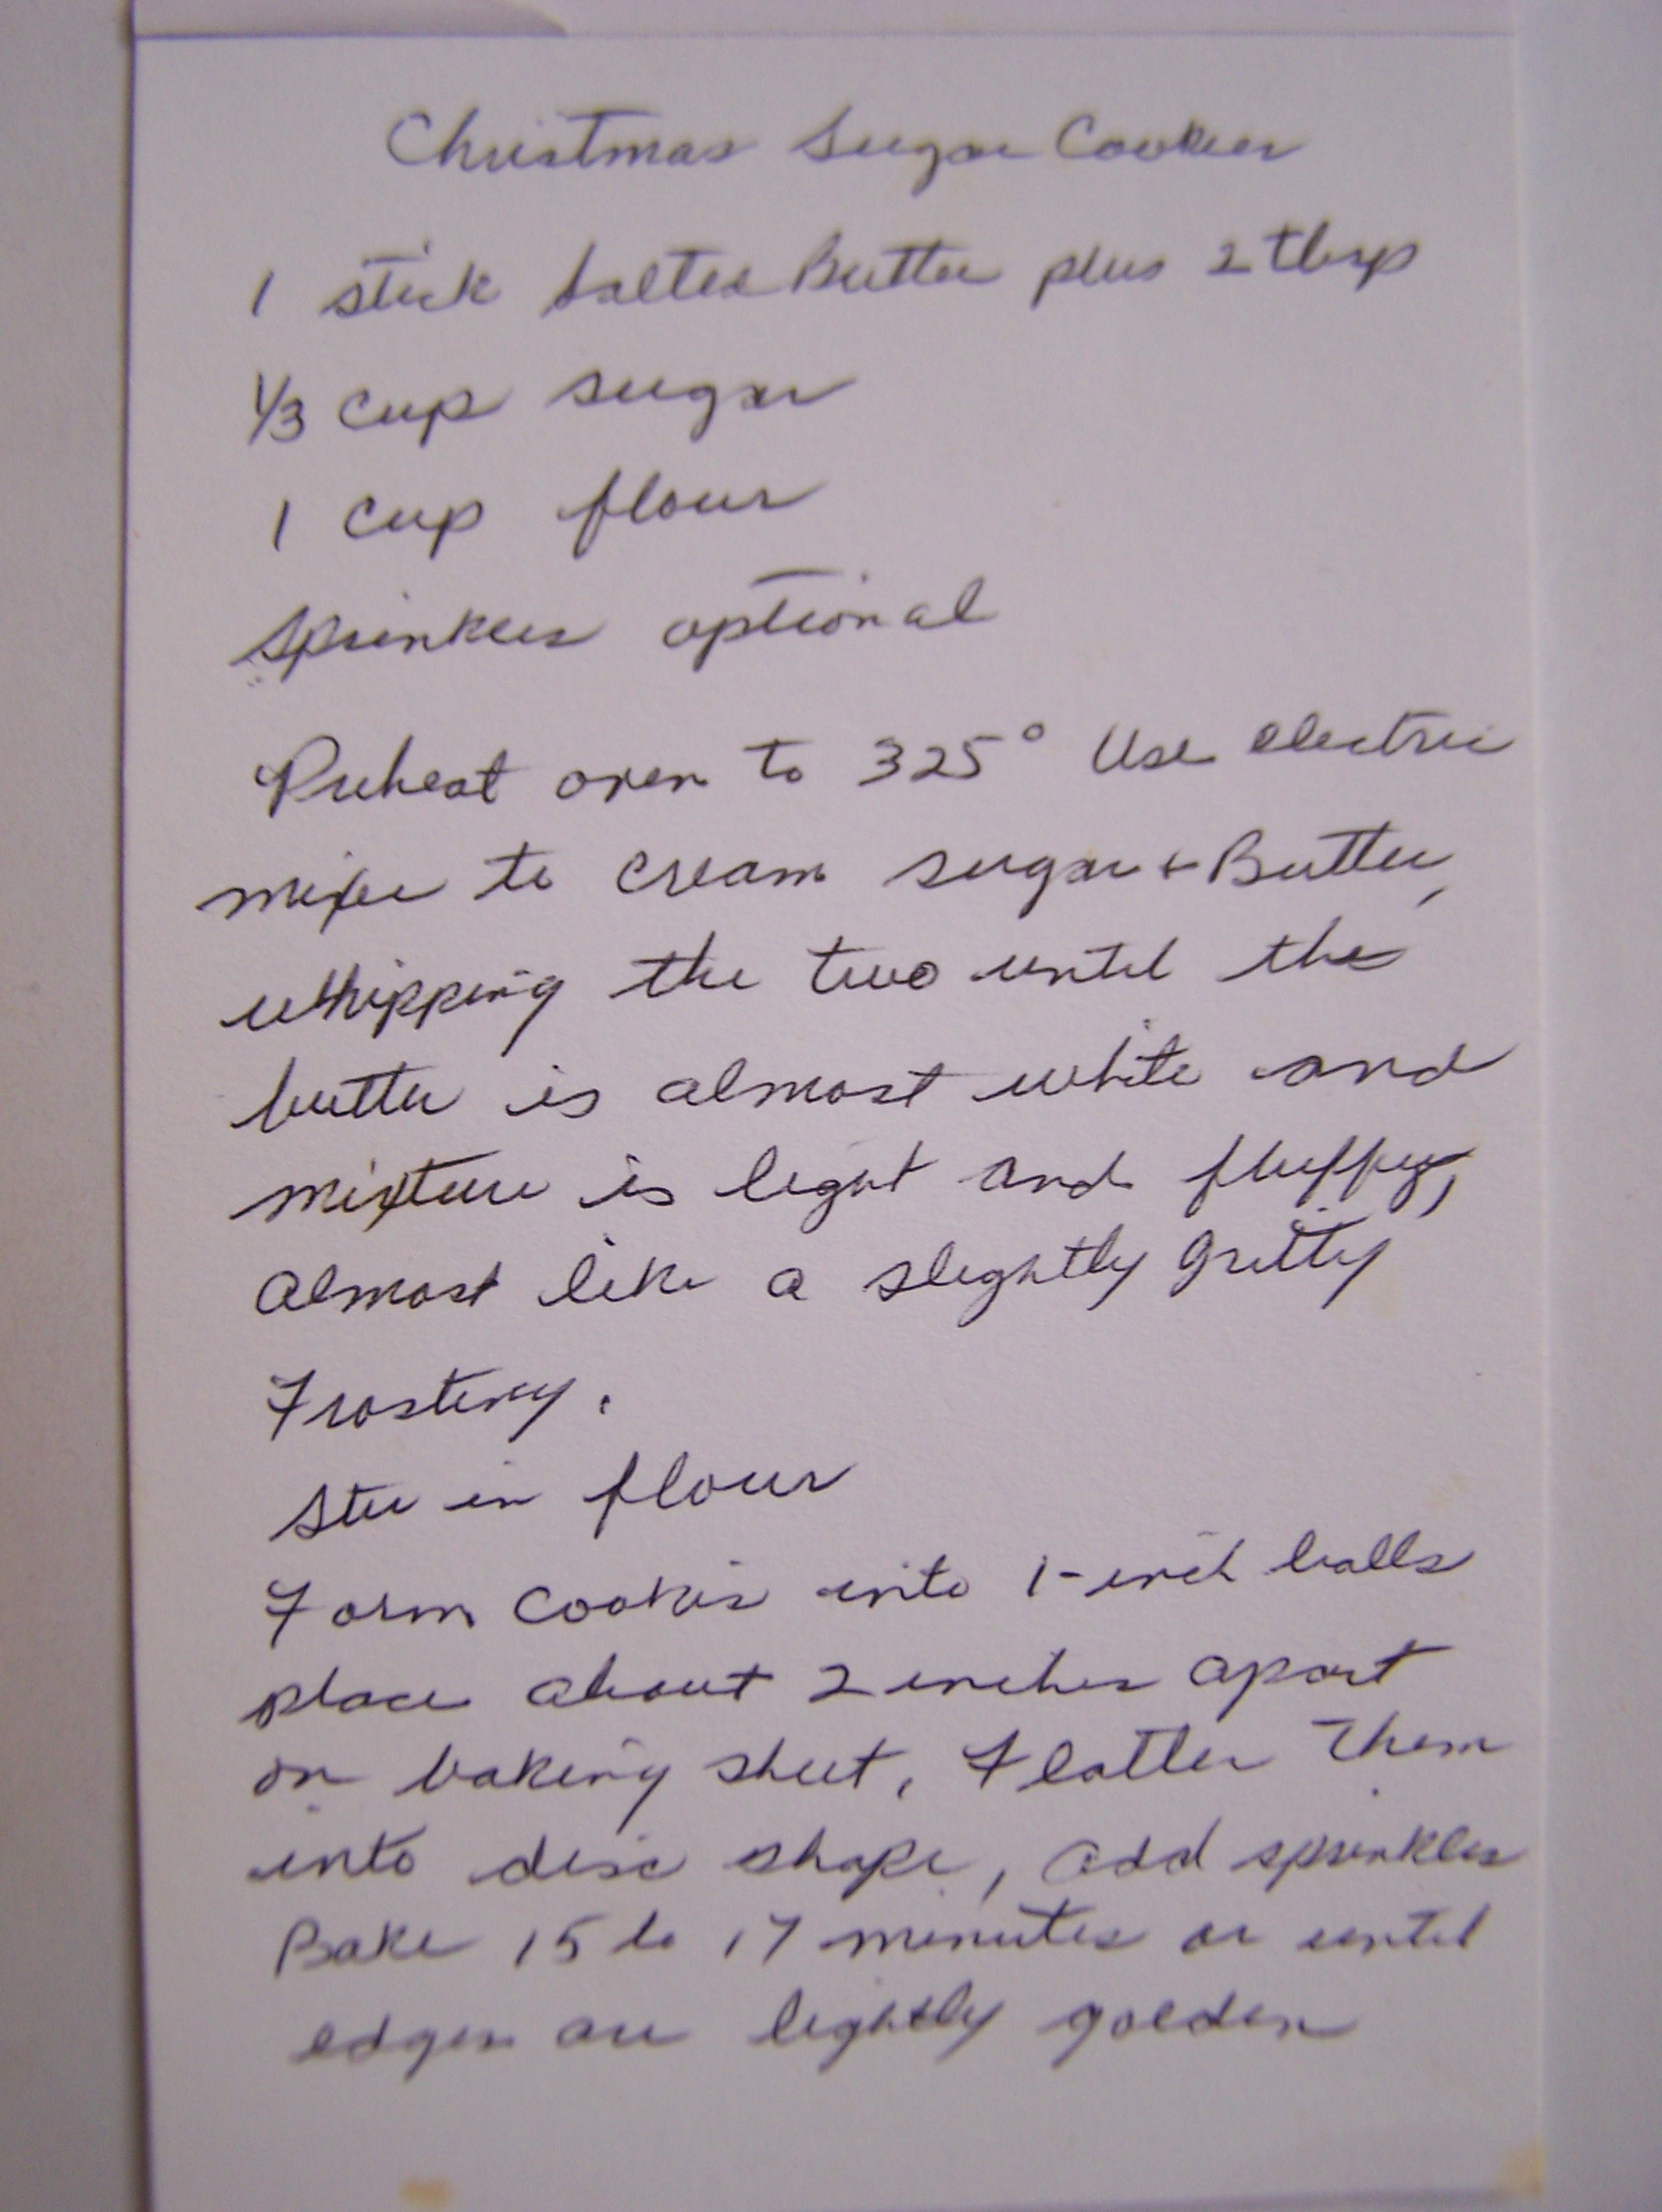 Christmas Sugar Cookies
1 stick salted Butter plus 2 tbsp
1/3 cup sugar
1 cup flour
Sprinkles optional
Preheat oven to 325° Use electric
mixer to cream sugar + Butter,
whipping the two until the
butter is almost white and
mixture is light and fluffy,
almost like a slightly gritty
Frosting.
Stir in flour
Form cookies into 1-inch balls
place about 2 inches apart
on baking sheet, Flatten them
into disc shape, add sprinkles
Bake 15 to 17 minutes or until
edges are lightly golden